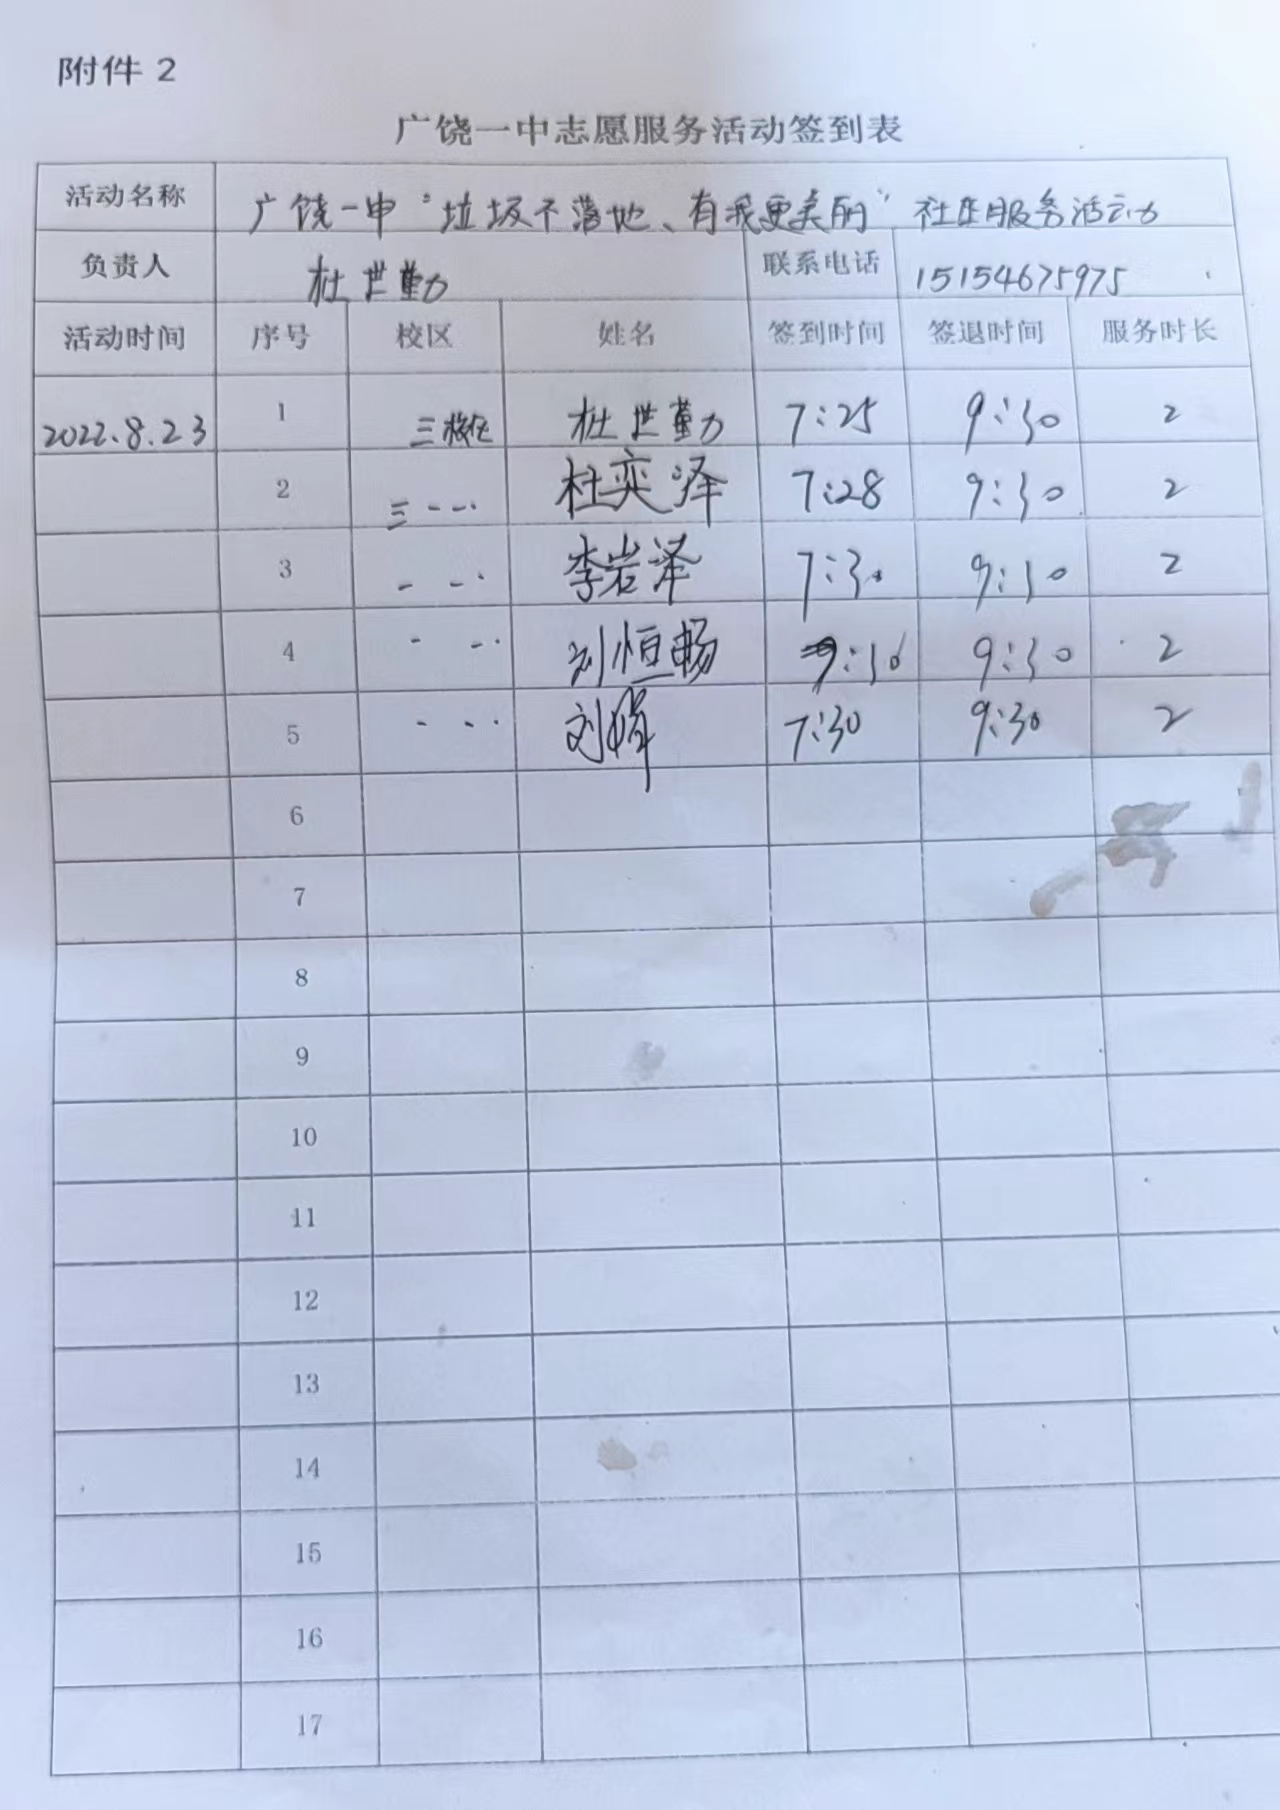 附件 2
广饶一中志愿服务活动签到表
活动名称 广饶一中“垃圾不落地、有我更美丽”社区服务活动
负责人 杜世勤 联系电话 15154675975
活动时间 序号 校区 姓名 签到时间 签退时间 服务时长
2022.8.23 1 三校区 杜世勤 7:25 9:30 2
2 三 杜奕泽 7:28 9:30 2
3 李岩泽 7:30 9:30 2
4 刘恒畅 9:30 2
5 刘 7:30 9:30 2
6
7
8
9
10
11
12
13
14
15
16
17